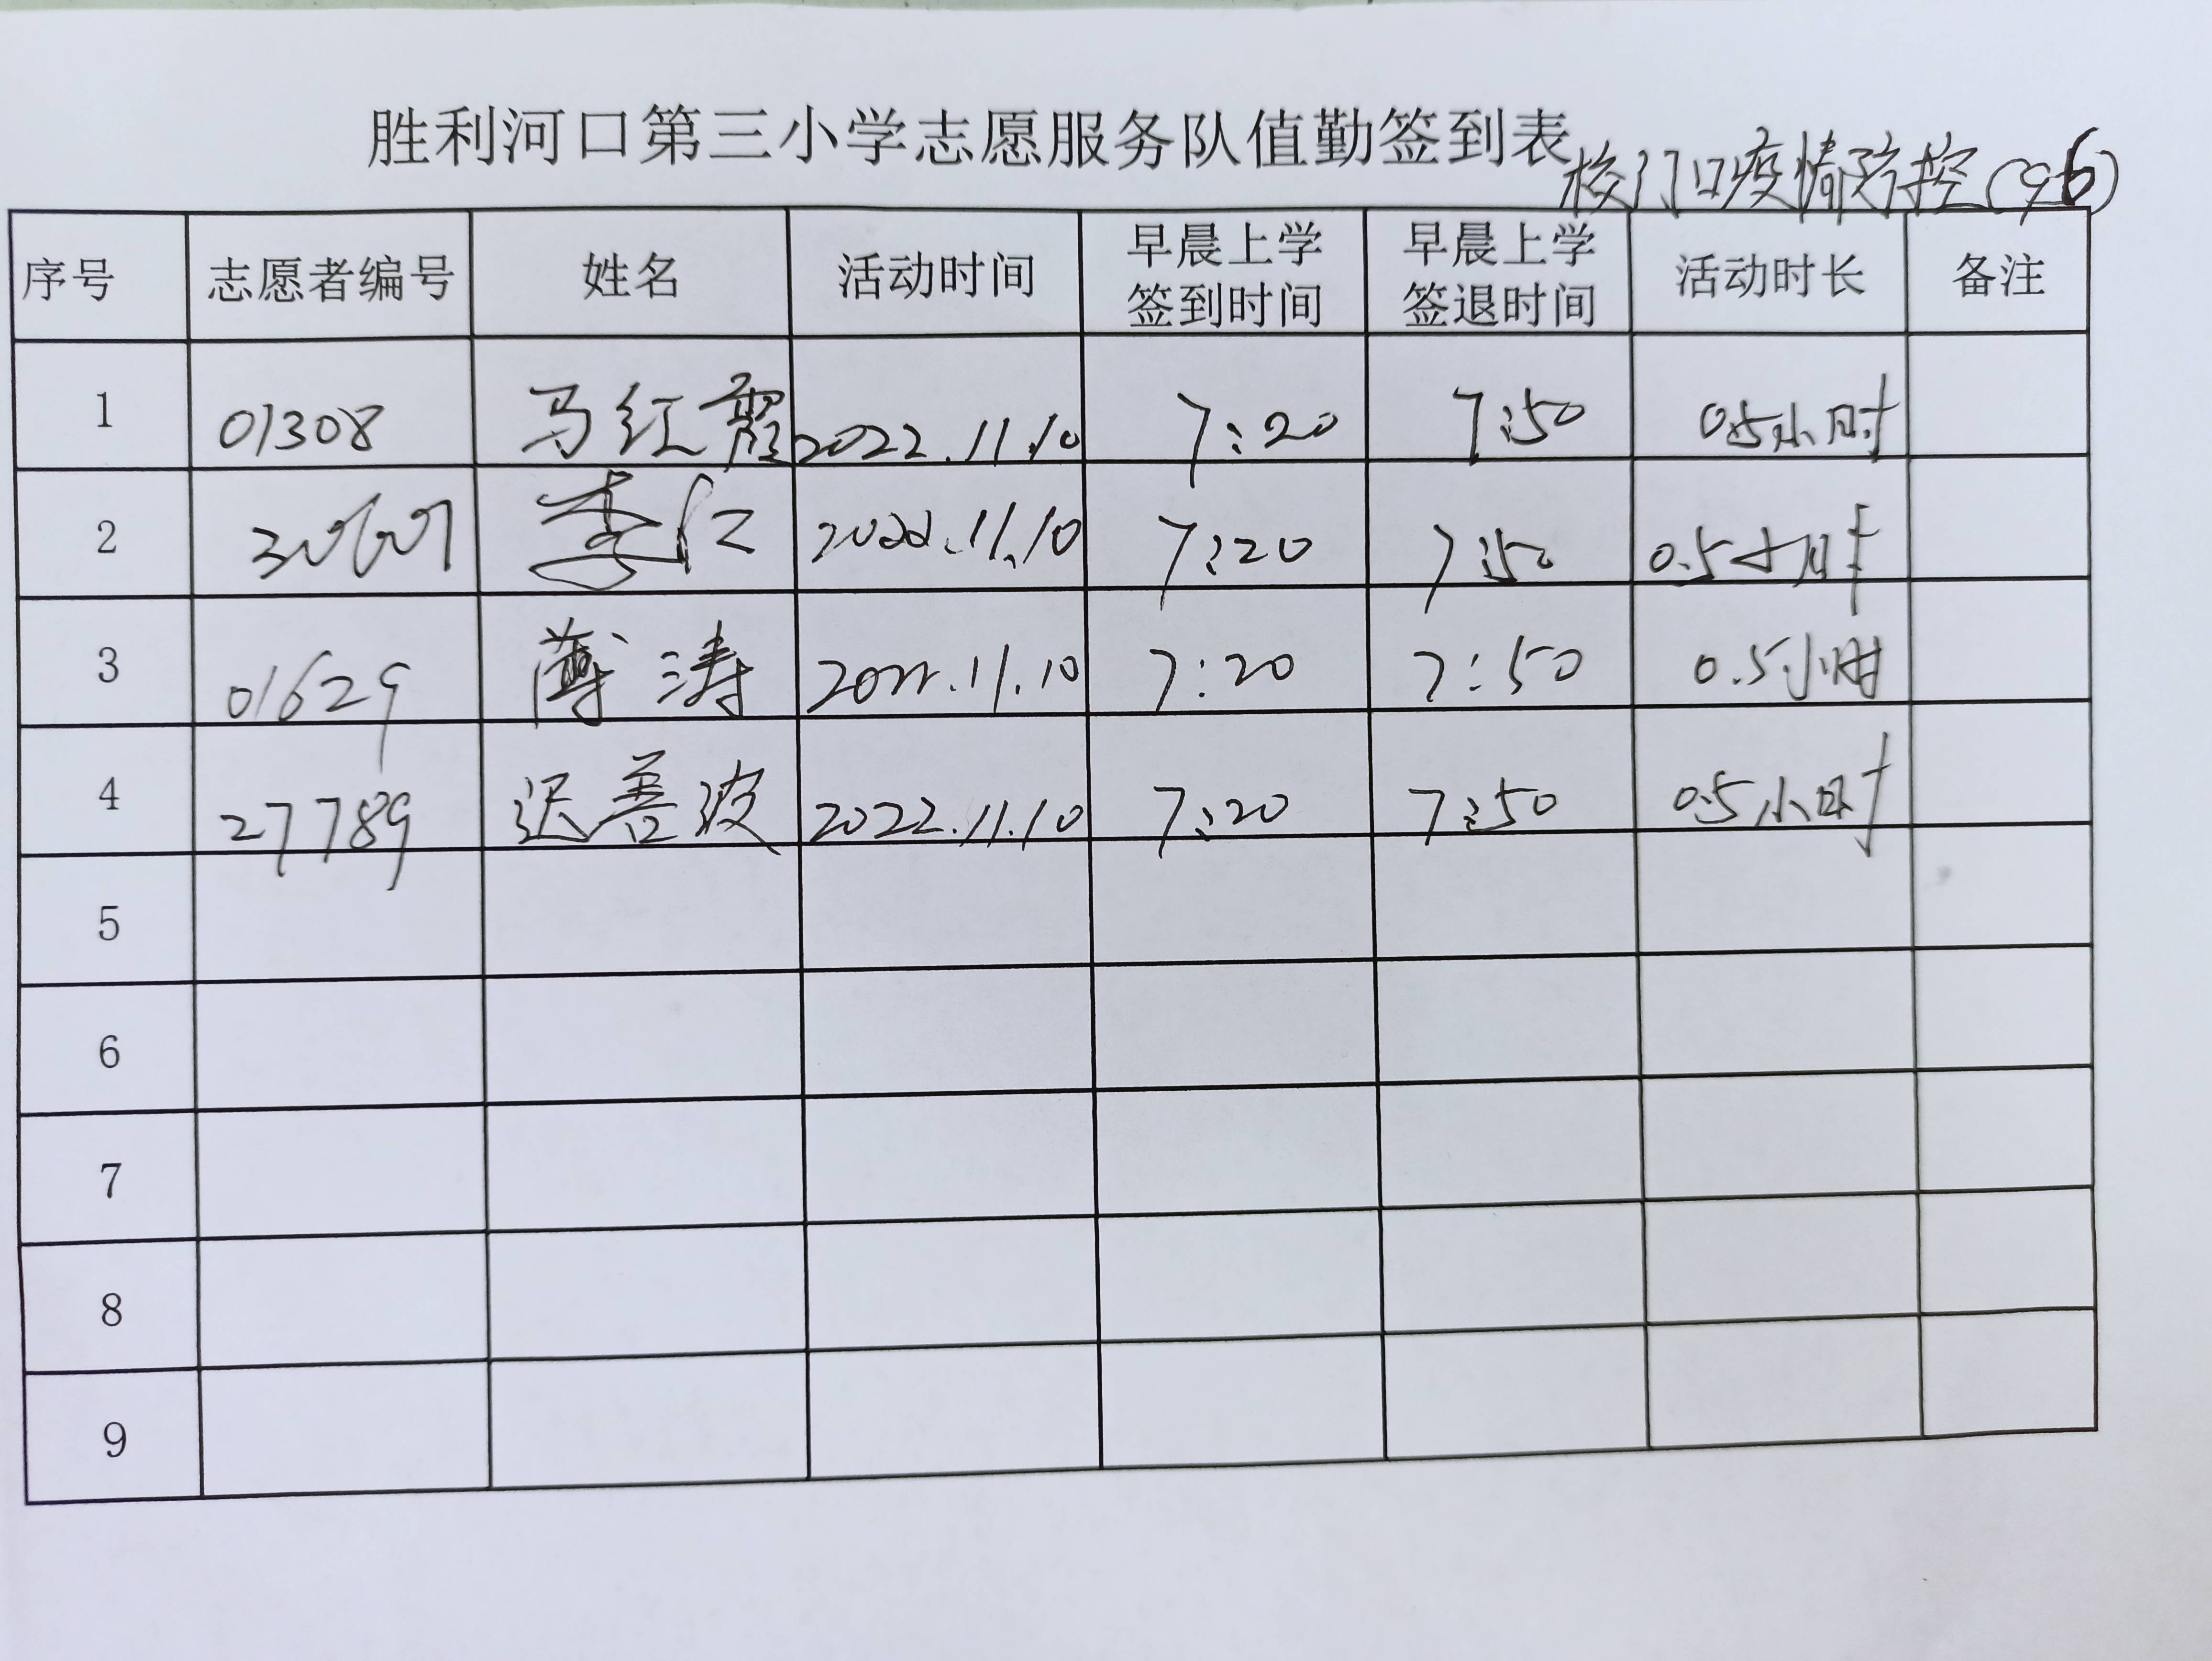 胜利河口第三小学志愿服务队值勤签到表
校门口疫情防控(96)
序号 志愿者编号 姓名 活动时间 早晨上学签到时间 早晨上学签退时间 活动时长 备注
1 01308 马红霞 2022.11.10 7:20 7:50 0.5小时
2 李仁 2022.11.10 7:20 7:50 0.5小时
3 01629 薄涛 2022.11.10 7:20 7:50 0.5小时
4 27789 迟善波 2022.11.10 7:20 7:50 0.5小时
5
6
7
8
9